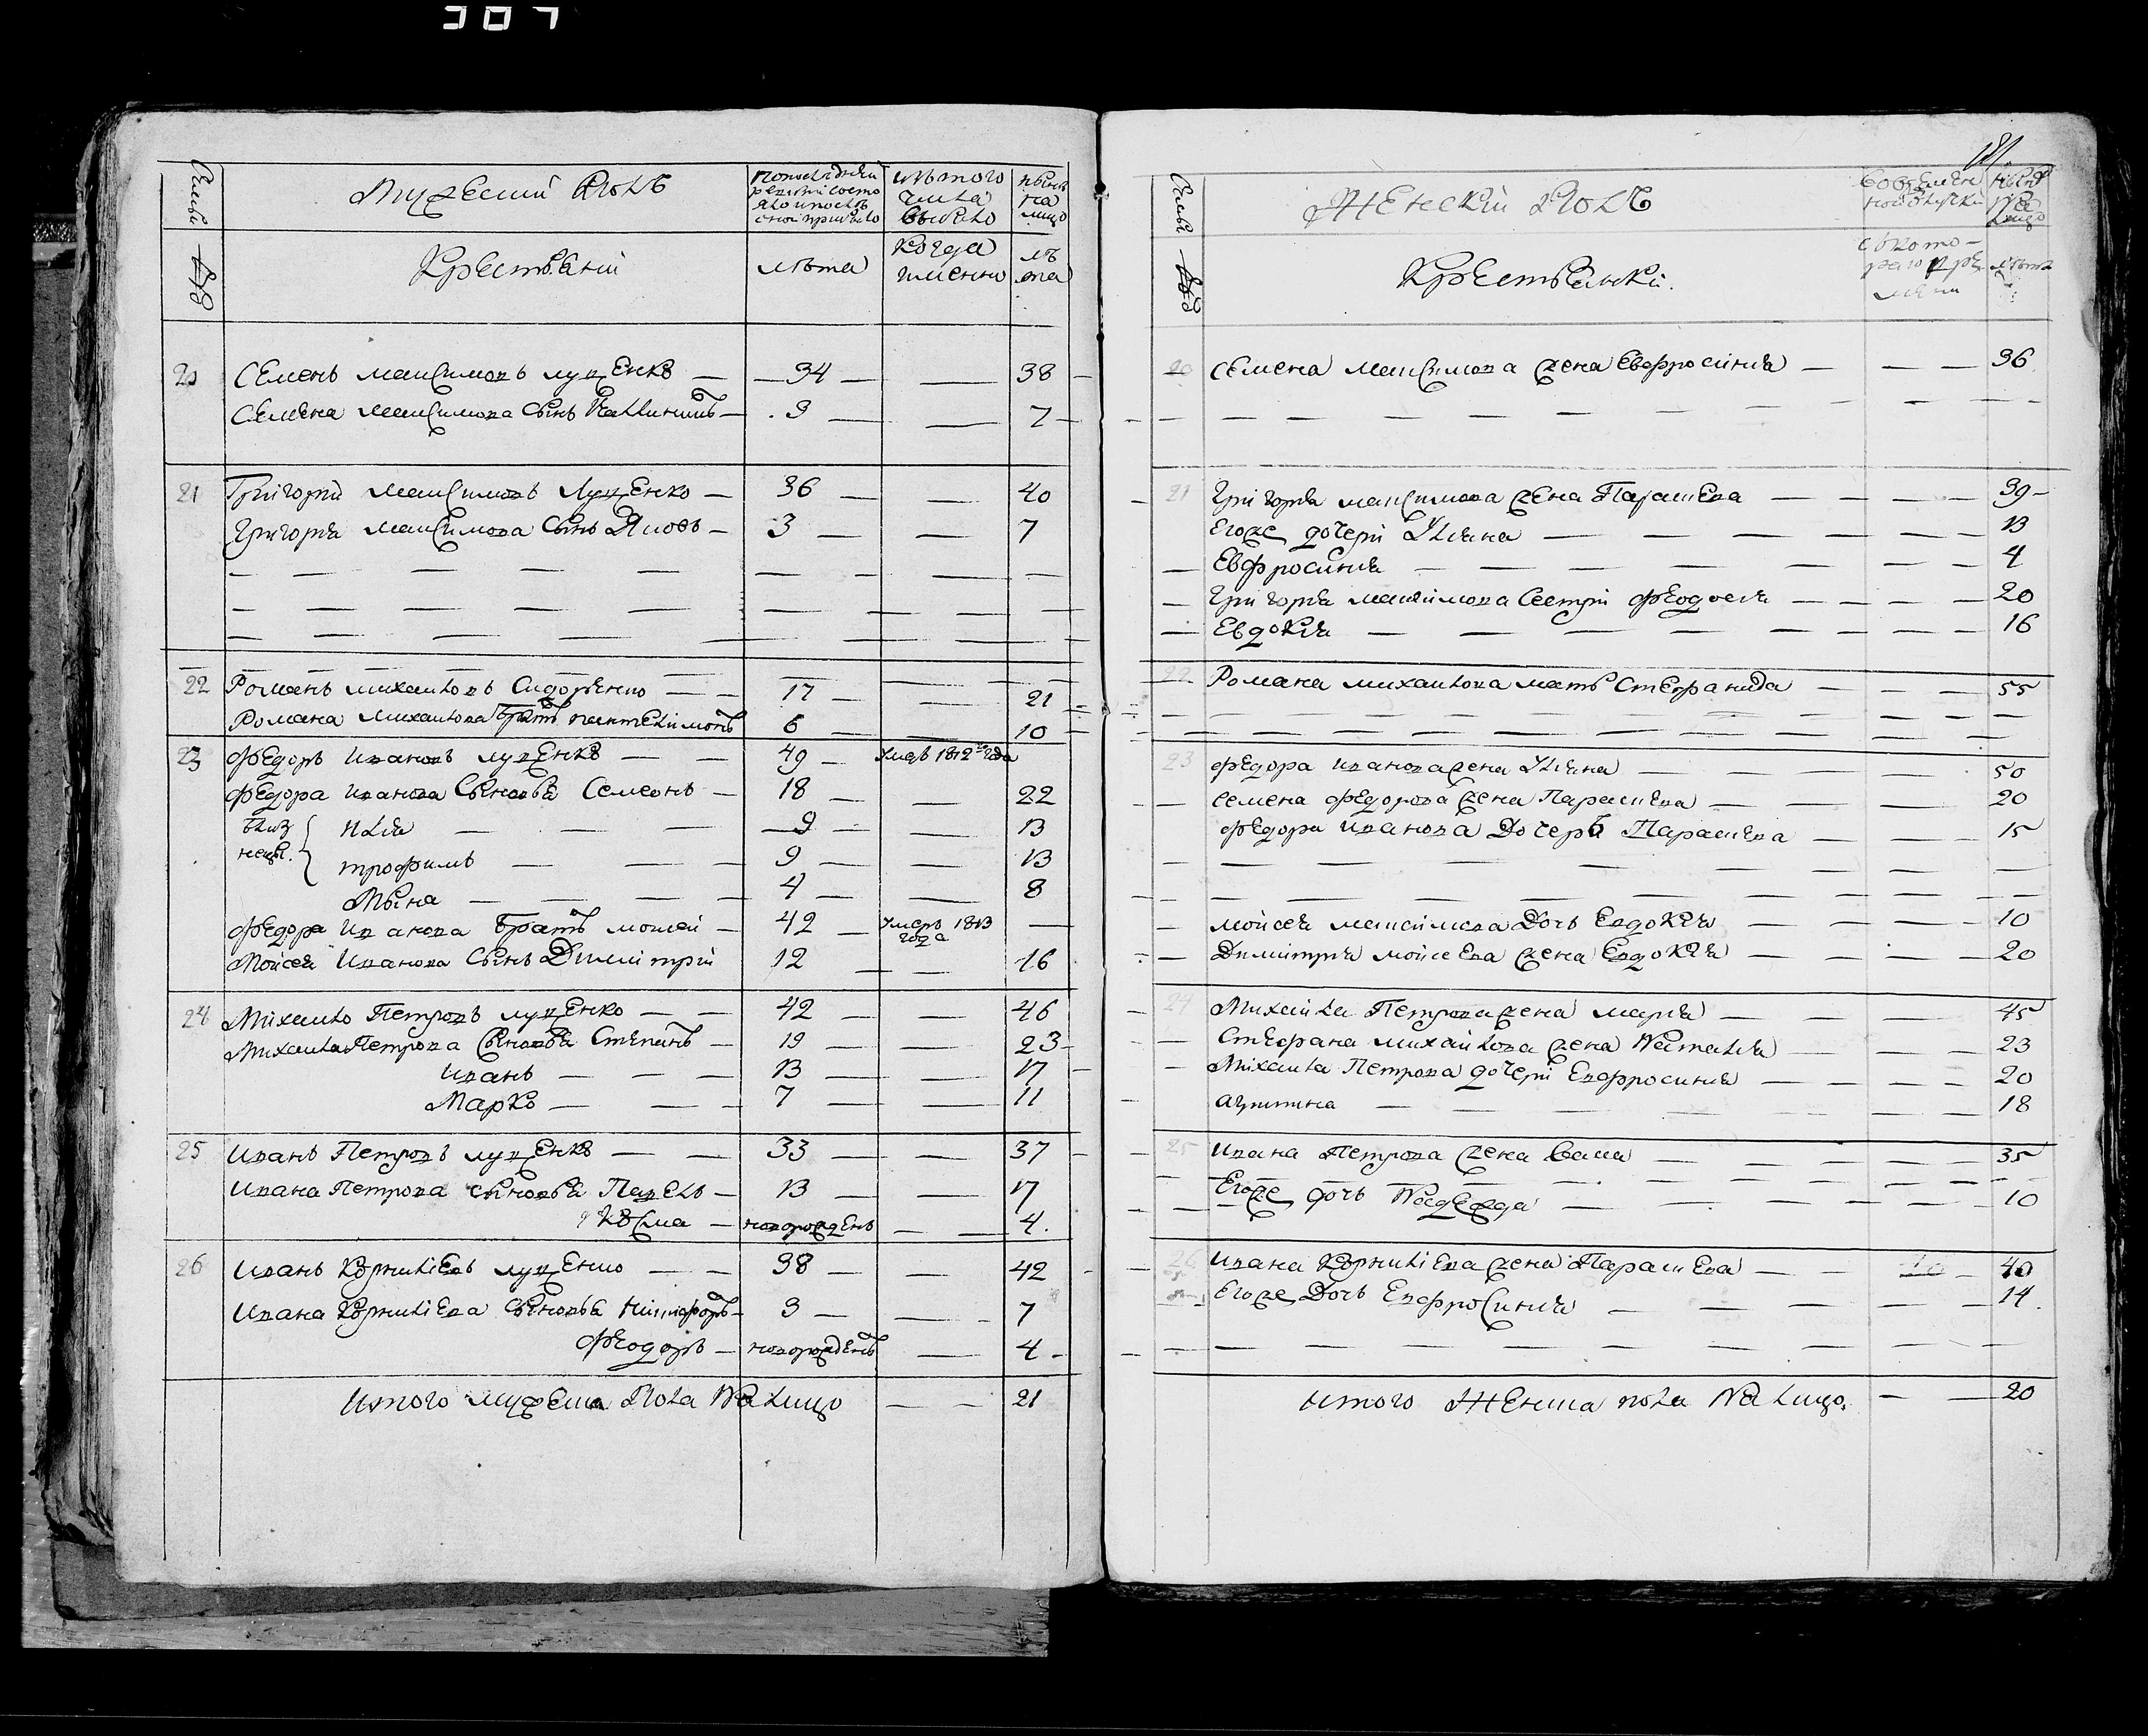 307
Семьи
Мужеский Полъ
Последней
ревизіи состо
яло и после
оной прибыло
изъ того
числа
выбыло
ныне
на
лицо
№
Крестьяни
лѣта
когда
именно
лѣ
та
20 Семенъ Максимовъ луценко — 34 — — 38
Семена Максимова Сынъ Каллиникъ — 3 — — 7
21 Григорій Максимовъ Луценко — 36 — — 40
Григорія Максимова Сынъ Яковъ — 3 — — 7
22 Романъ михайловъ Сидоренко — — 17 — — 21
Романа Михайлова Братъ пантелимонъ 6 — — 10
23 Федоръ Ивановъ луценко — — 49 — Умеръ 1812го года
Федора Иванова Сыновья Семионъ — 18 — — 22
близ
нецы { Илія — — — 9 — — 13
трофимъ — — — 9 — — 13
Мына — — — — 4 — — 8
Федора Иванова Братъ моисей — 42 — Умеръ 1813 года —
Мойсея Иванова Сынъ Димитрій 12 — — 16
24 Михайло Петровъ луценко — — 42 — — 46
Михайла Петрова Сыновья Степанъ — 19 — — 23
Иванъ — — — 13 — — 17
Марко — — — 7 — — 11
25 Иванъ Петровъ луценко — — 33 — — 37
Ивана Петрова сыновья Павелъ — 13 — — 17
Козма — новорожденъ — — 4.
26 Иванъ Корниліевъ луценко — — 38 — — 42
Ивана Корниліева Сыновья Никифоръ — 3 — — 7
Феодоръ — новорожденъ — 4 —
Итого мужеска Пола На лицо — — 21
181.
Семьи
Женскій Полъ
во временной отлучки
ныне
на
лицо
№
Крестьянки.
съ кото-
раго вре-
мени
лѣта
20 Семена Максимова жена Евфросинія — — — 36
21 Григорія максимова жена Парасκева — — — — 39
Егоже дочери Уліяна — — — — — — 13
Евфросинія — — — — — — 4
Григорія максимова Сестри Феодосія — — — — 20
Евдокія — — — — — — — 16
22 Романа михайлова мать Стефанида — — — — 55
23 Федора Иванова жена Уліяна — — — — — 50
Семена Федорова жена Параскева — — — 20
Федора Иванова Дочерь Параскева — — — 15
мойсея максимова Дочь Евдокія — — — — 10
Димитрія мойсеева жена Евдокія — — — — 20
24 Михайла Петрова жена марія — — — — 45
Стефана михайлова жена Наталія — — — 23
Михайла Петрова дочери Евфросинія — — — — 20
агрипина — — — — — — — 18
25 Ивана Петрова жена Васса — — — — — 35
Егоже дочь Надежда — — — — — 10
26 Ивана Корниліева жена Параскева — — — 40
Егоже Дочь Евфросинія — — — — — 14.
Итого Женска пола На лицо. — — 20